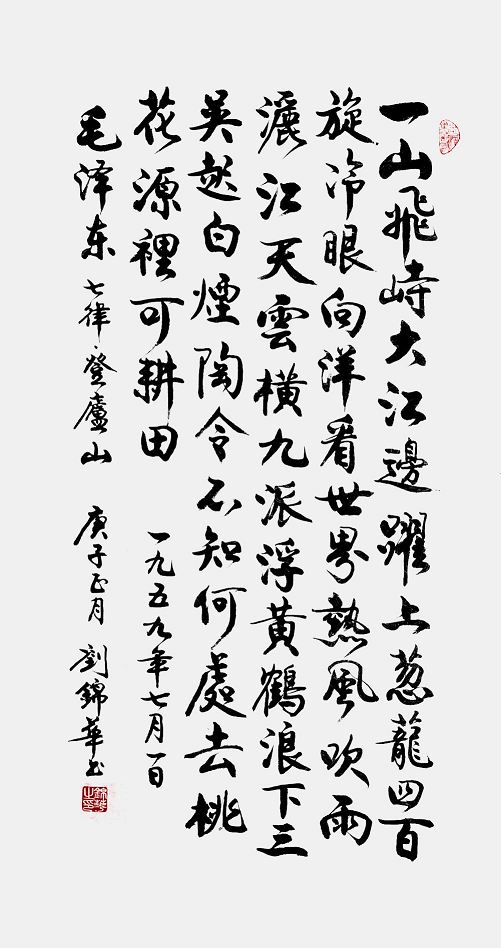 一山飛峙大江邊躍上葱蘢四百
旋冷眼向洋看世界熱風吹雨
灑江天雲橫九派浮黃鶴浪下三
吴起白煙陶令不知何處去桃
花源裡可耕田
一九五九年七月一日
毛泽东 七律 登廬山 庚子正月 劉錦華书